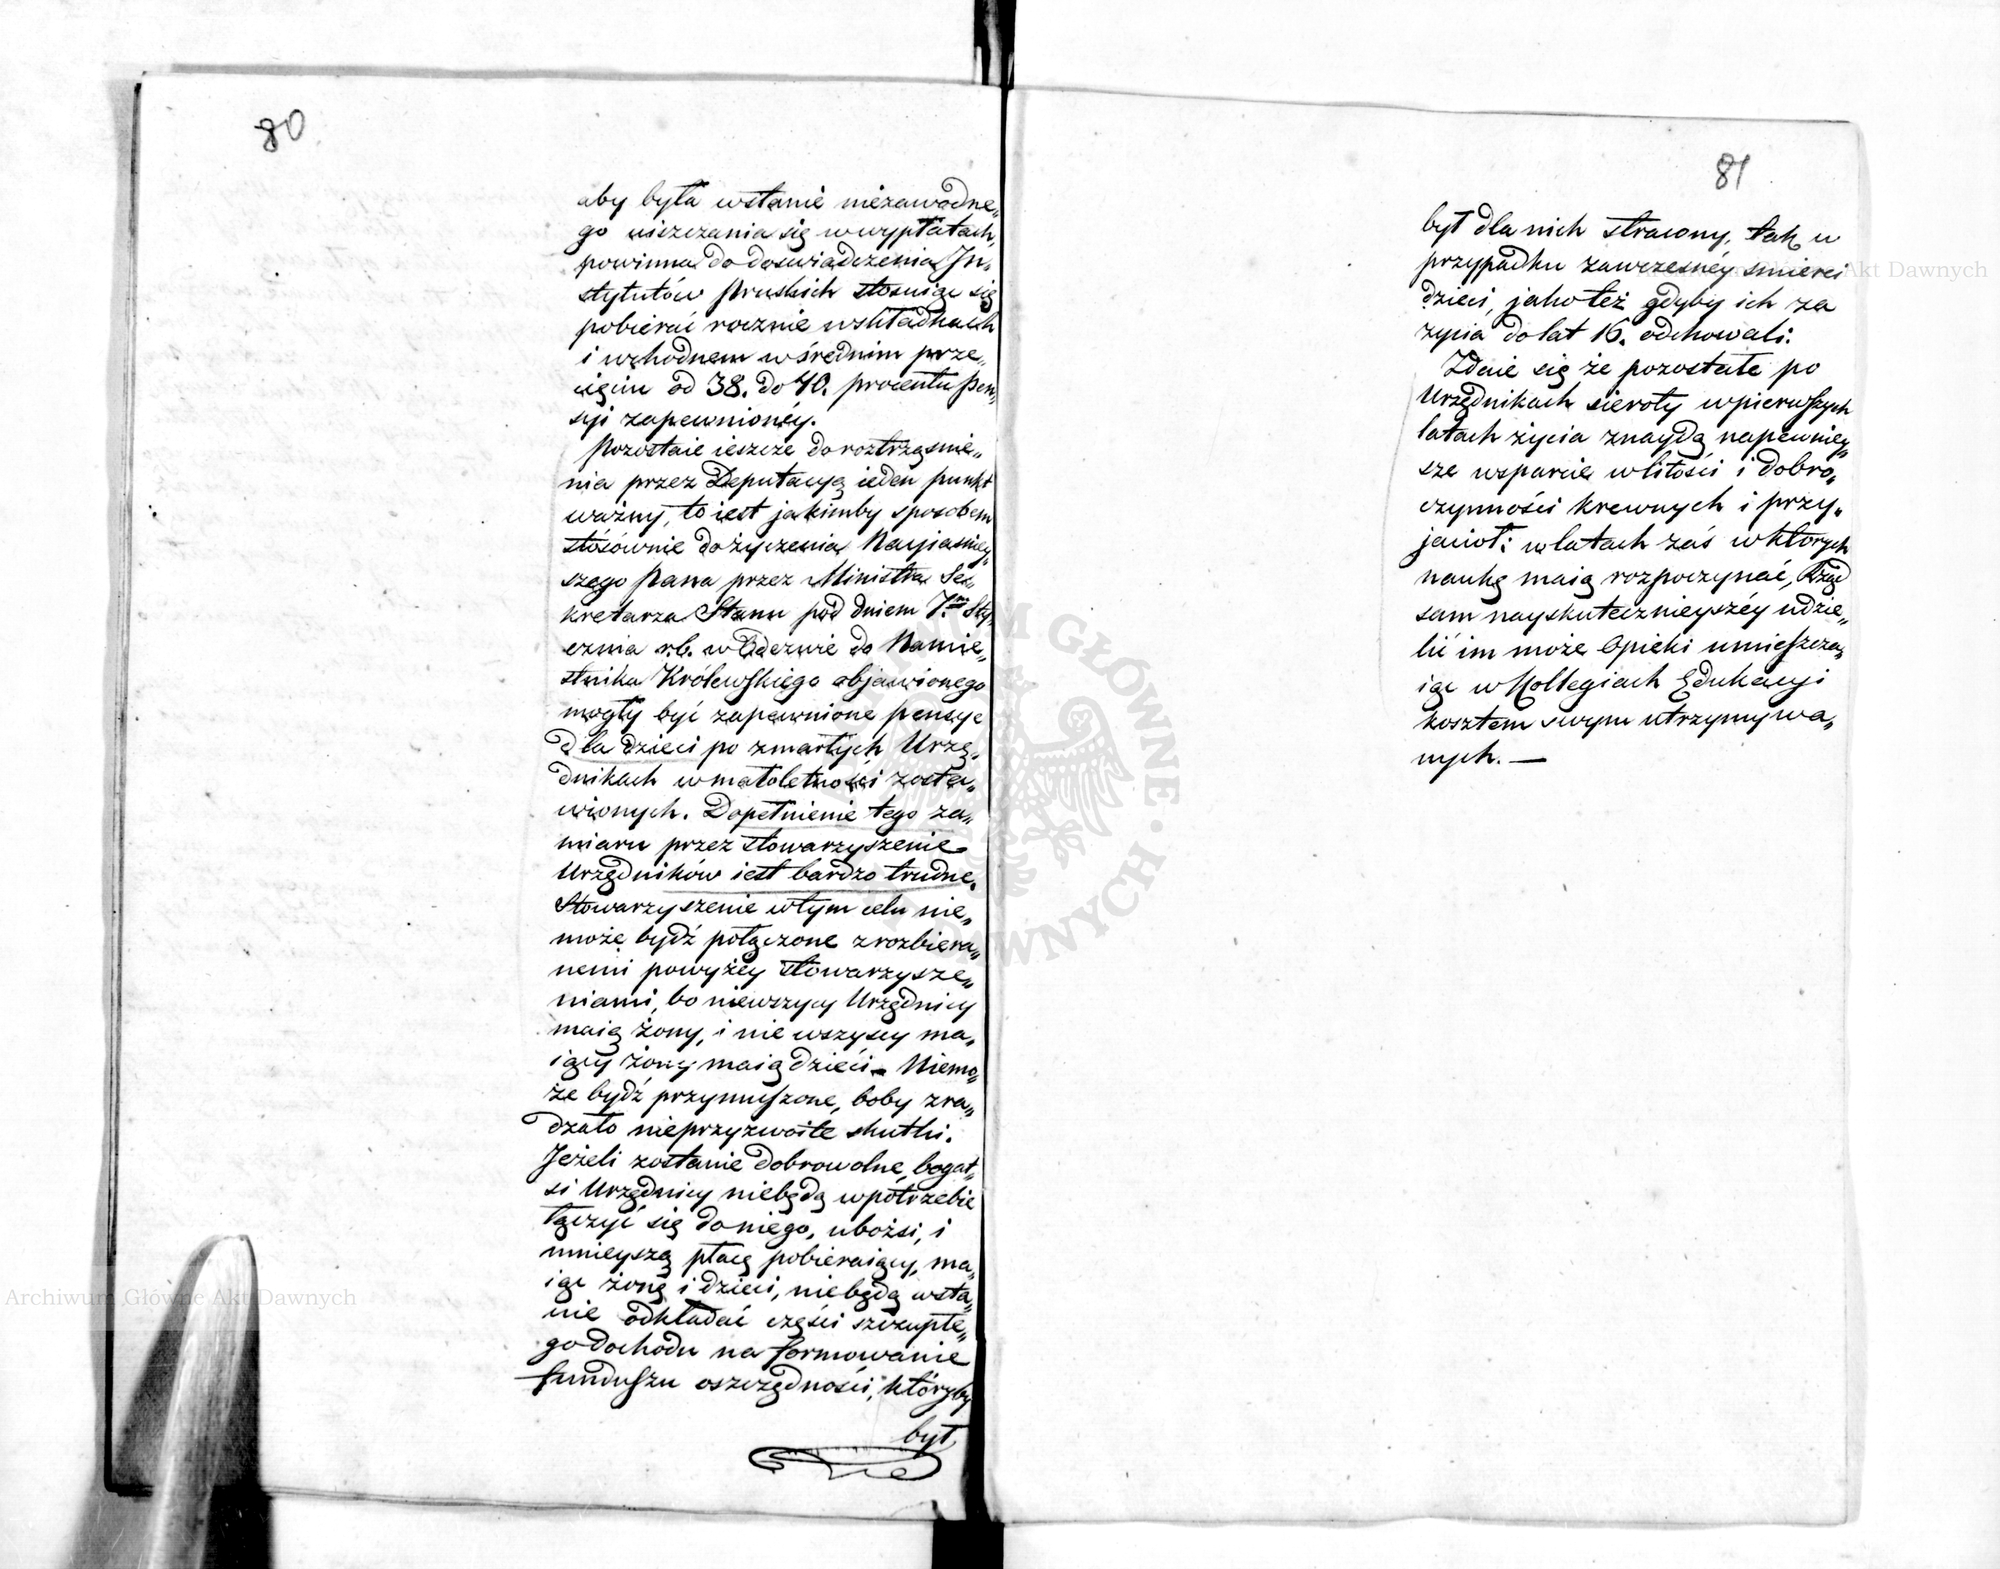 80
aby była wstanie niezawodne„
go uiszczania się w wypłatach,
powinna do doswiadczenia In„
stytutów Pruskich stosuiąc się
pobierać rocznie wskładkach
i wchodnem w średnim prze„
cięciu od 38. do 40. procentu pen„
syi zapewnionéy.
Pozostaie ieszcze do roztrząśnie„
nia przez Deputacyą ieden punkt
ważny, to iest jakimby sposobem
stósównie do życzenia Nayiasniey„
szego Pana przez Ministra Se„
kretarza Stanu pod dniem 7.m Sty„
cznia r.b. w Odezwie do Namie„
stnika Królewskiego objawionego
mogły być zapewnione pensye
dla dzieci po zmarłych Urzę„
dnikach w małoletności zosta„
wionych. Dopełnienie tego za„
miaru przez stowarzyszenie
Urzędników iest bardzo trudne.
Stowarzyszenie wtym celu nie„
może bydź połączone z rozbiera„
nemi powyżey stowarzysze„
niami, bo niewszyscy Urzędnicy
maią żony, i nie wszyscy ma„
iący żony maią dzieci – Niemo„
że bydź przymuszone, boby zra„
dzało nieprzyzwoite skutki.
Jeżeli zostanie dobrowolne, bogat„
si Urzędnicy niebędą w potrzebie
łączyć się do niego, ubożsi, i
mnieyszą płacę pobieraiący, ma„
iąc żonę i dzieci, niebędą wsta„
nie odkładać części szczupłe„
go dochodu na formowanie
funduszu oszczędności, któryby
był
81
był dla nich stracony, tak w
przypadku zawczesnéy smierci
dzieci, jako też gdyby ich za
życia do lat 16. odchowali.
Zdaie się że pozostałe po
Urzędnikach sieroty w pierwszych
latach życia znaydą napewniey„
sze wsparcie w litości i dobro„
czynności krewnych i przy„
jaciół; w latach zaś w których
naukę maią rozpoczynać, Rząd
sam nayskutecznieyszéy udzie„
lić im może Opieki umieszcza„
iąc w Kollegiach Edukacyi
kosztem swym utrzymywa„
nych. —
Archiwum Główne Akt Dawnych
Akt Dawnych
M GŁÓWNE
WNYCH